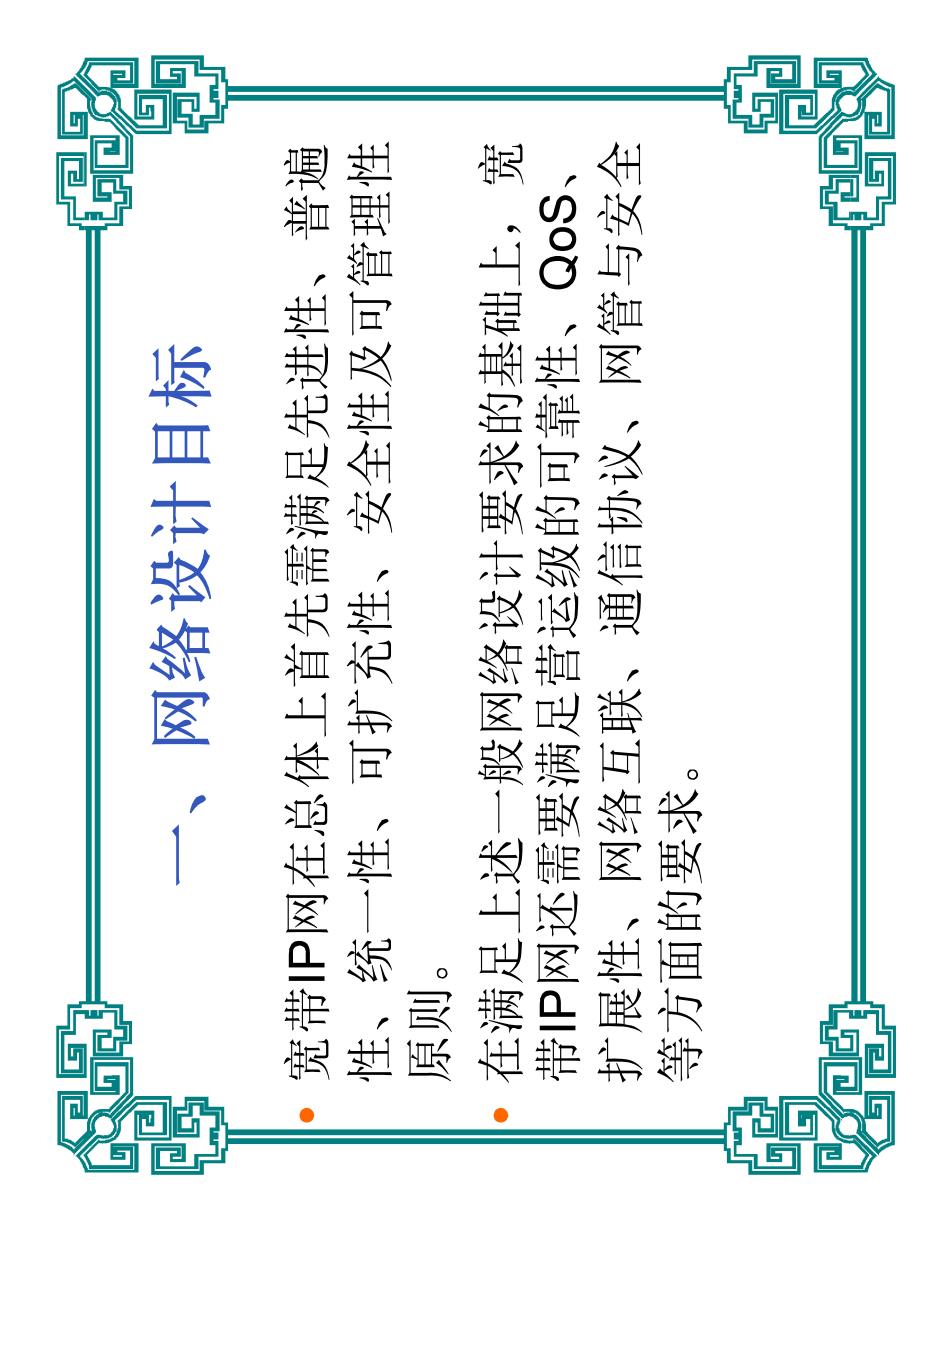 一、 网络设计目标
宽带IP网在总体上首先需满足先进性、普遍
性、统一性、可扩充性、安全性及可管理性
原则。
在满足上述一般网络设计要求的基础上，宽
带IP网还需要满足营运级的可靠性、QoS、
扩展性、网络互联、通信协议、网管与安全
等方面的要求。